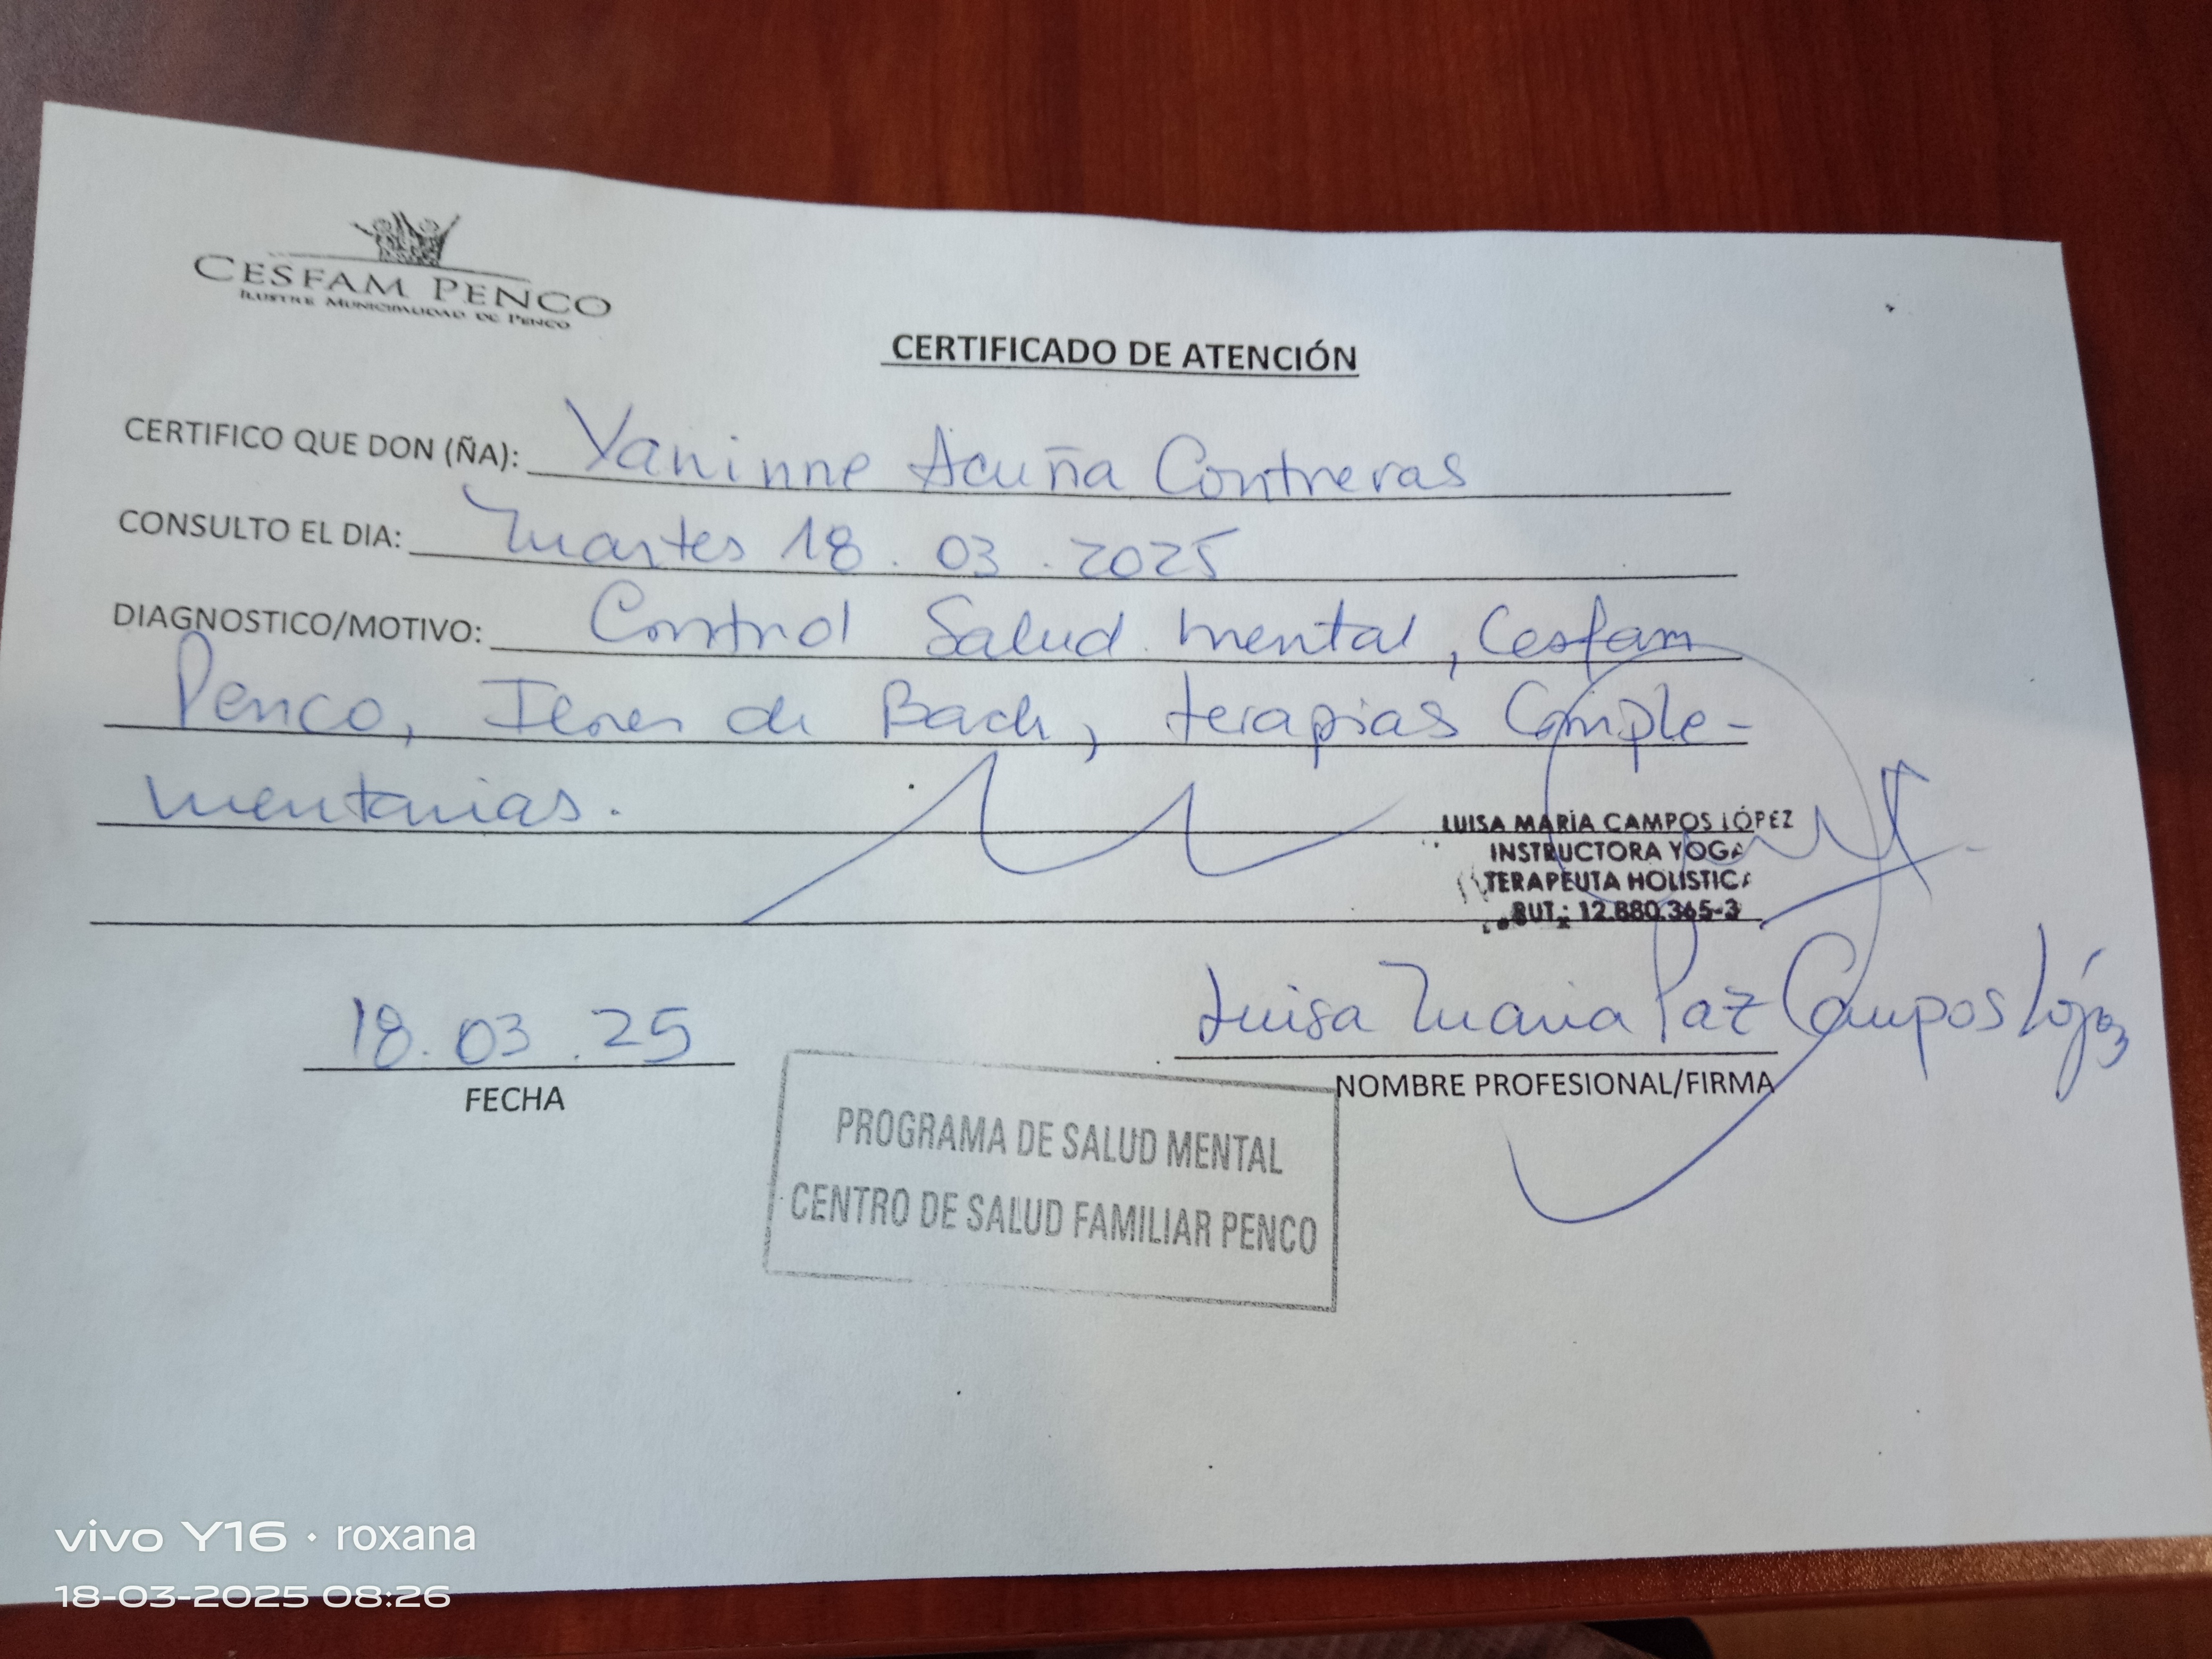 CESFAM PENCO
ILUSTRE MUNICIPALIDAD DE PENCO
CERTIFICADO DE ATENCIÓN
CERTIFICO QUE DON (ÑA): Yaninne Acuña Contreras
CONSULTO EL DIA: Martes 18.03.2025
DIAGNOSTICO/MOTIVO: Control Salud mental, Cesfam
Penco, Flores de Bach, terapias Comple-
mentarias.
LUISA MARÍA CAMPOS LÓPEZ
INSTRUCTORA YOGA
TERAPEUTA HOLISTICA
RUT.: 12.880.365-3
18.03.25
Luisa Maria Paz Campos López
FECHA
NOMBRE PROFESIONAL/FIRMA
PROGRAMA DE SALUD MENTAL
CENTRO DE SALUD FAMILIAR PENCO
vivo Y16 · roxana
18-03-2025 08:26